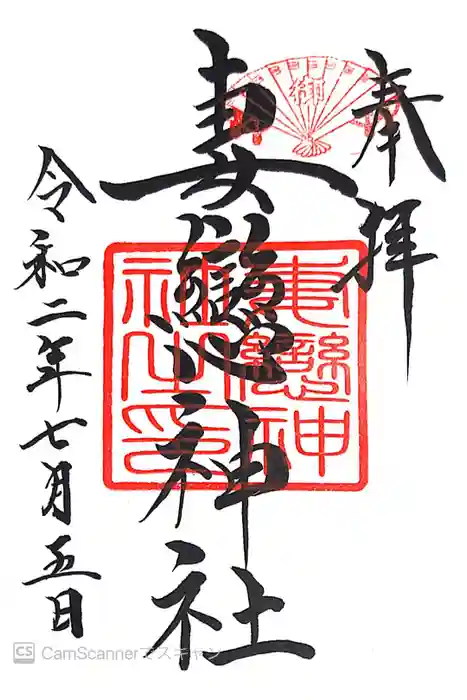 奉拝
妻戀神社
妻戀神
社之印
令和二年七月五日
CS CamScannerでスキャン